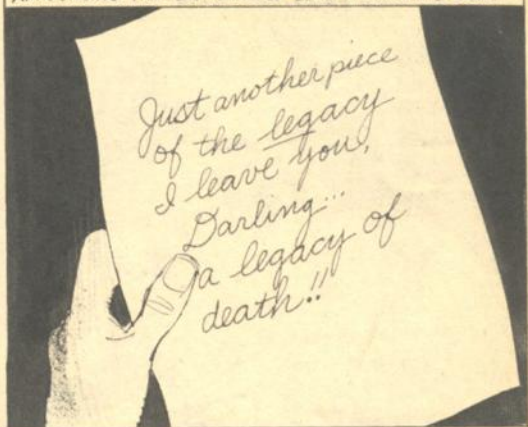 Just another piece
of the legacy
I leave you,
Darling...
a legacy of
death!!